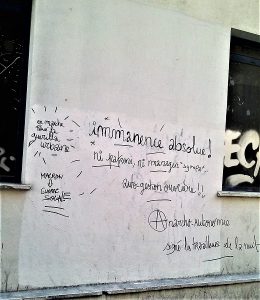 en marche
vers la
guérilla
urbaine
MACRON
GUERRE
SOCIALE
immanence absolue!
ni patrons, ni managers "sympas".
auto-gestion ouvrière!!
Anarcho-Autonomie
signé la travailleuse de la nuit